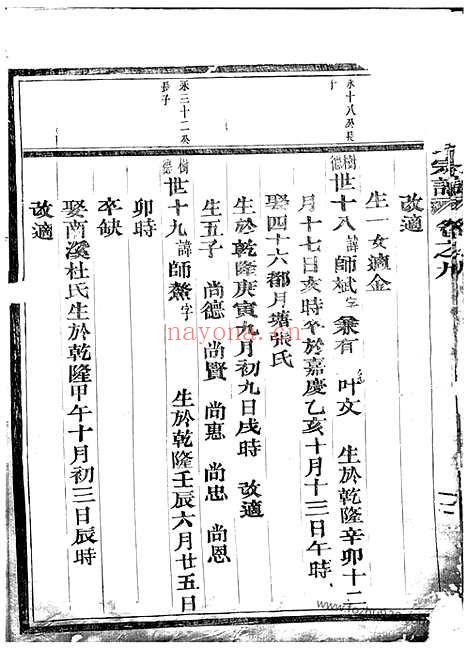 宗譜 卷之九
改適
生一女適金
樹德 世十八 諱師斌 字乗有 叶文 生於乾隆辛卯十二
月十七日亥時卒於嘉慶乙亥十月十三日午時
娶四十六都月塘張氏
生於乾隆庚寅九月初九日戌時 改適
生五子 尚德 尚賢 尚惠 尚忠 尚恩
樹德 世十九 諱師鰲 字 生於乾隆壬辰六月廿五日
卯時
卒缺
娶南溪杜氏生於乾隆甲午十月初三日辰時
改適
永十八公長
永三十二公
長子
nayona.cn